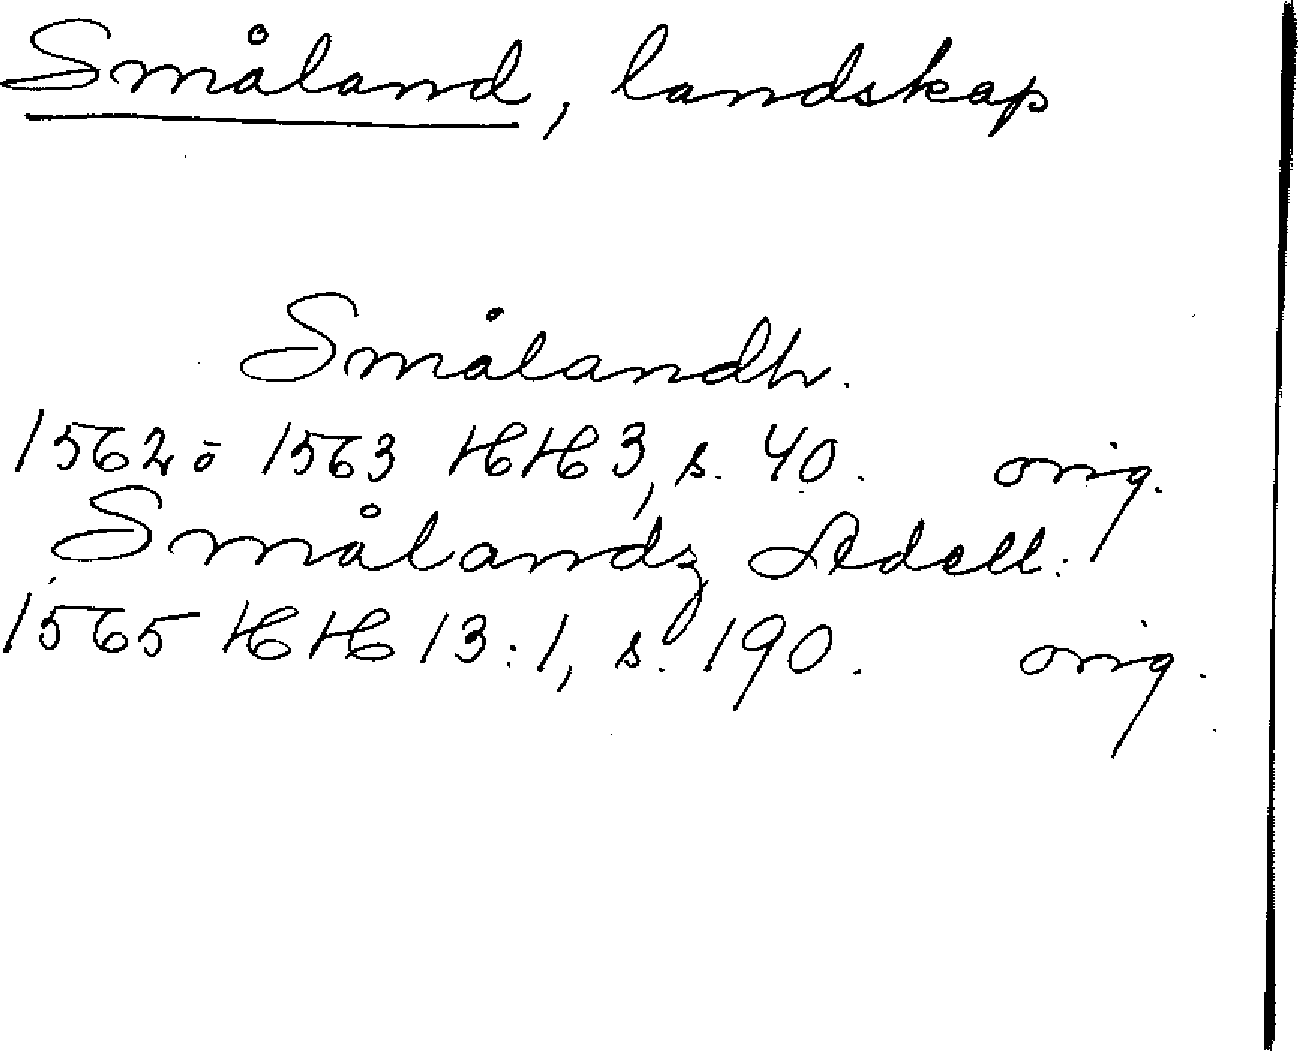 Småland, landskap
Smålandh.
1562 ō 1563 HH 3, s. 40. orig.
Smålandz Adell.
1565 HH 13:1, s. 190. orig.